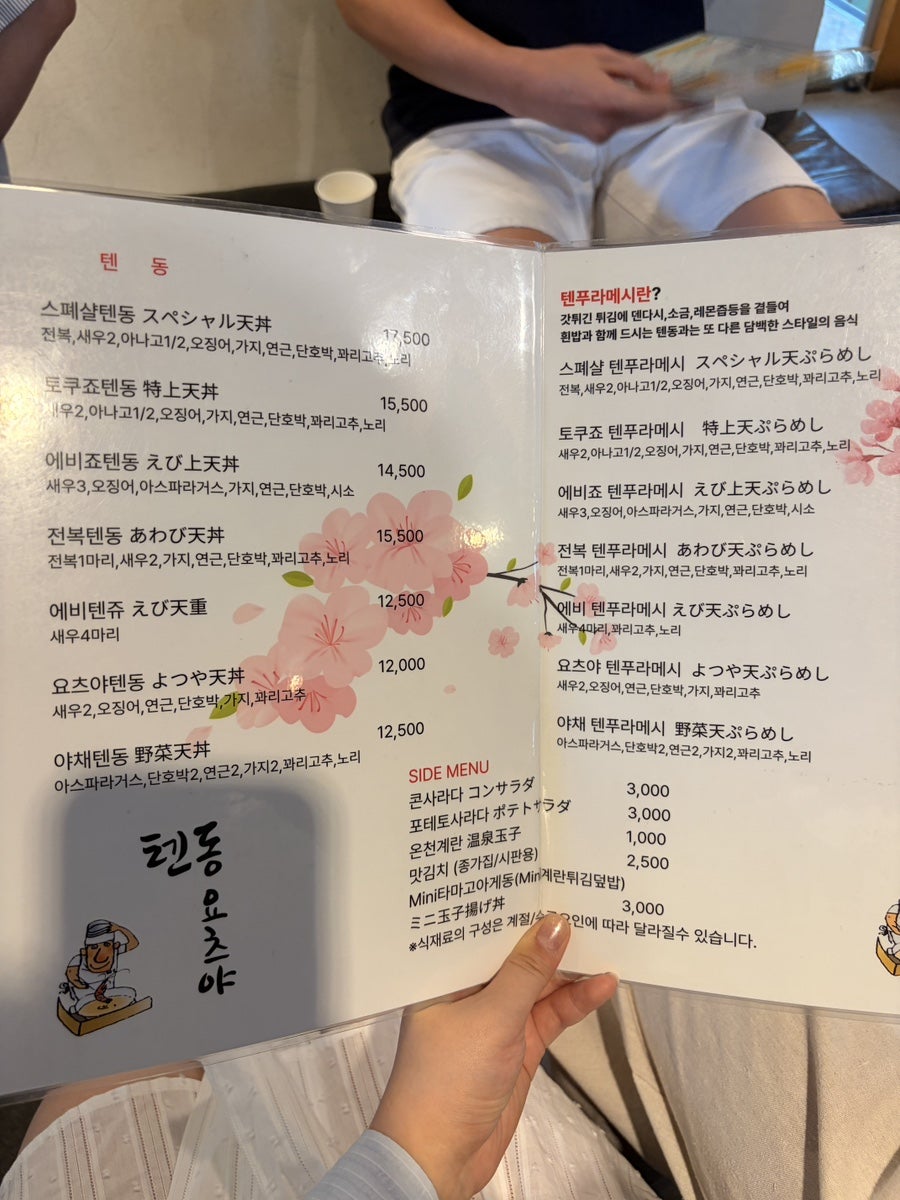 텐 동
스폐샬텐동 スペシャル天丼 17,500
전복,새우2,아나고1/2,오징어,가지,연근,단호박,꽈리고추,노리
토쿠죠텐동 特上天丼 15,500
새우2,아나고1/2,오징어,가지,연근,단호박,꽈리고추,노리
에비죠텐동 えび上天丼 14,500
새우3,오징어,아스파라거스,가지,연근,단호박,시소
전복텐동 あわび天丼 15,500
전복1마리,새우2,가지,연근,단호박,꽈리고추,노리
에비텐쥬 えび天重 12,500
새우4마리
요츠야텐동 よつや天丼 12,000
새우2,오징어,연근,단호박,가지,꽈리고추
야채텐동 野菜天丼 12,500
아스파라거스,단호박2,연근2,가지2,꽈리고추,노리
텐동
요츠야
SIDE MENU
콘사라다 コンサラダ 3,000
포테토사라다 ポテトサラダ 3,000
온천계란 温泉玉子 1,000
맛김치 (종가집/시판용) 2,500
Mini타마고아게동(Mini계란튀김덮밥)
ミニ玉子揚げ丼 3,000
※식재료의 구성은 계절/수급요인에 따라 달라질수 있습니다.
텐푸라메시란?
갓튀긴 튀김에 덴다시,소금,레몬즙등을 곁들여
흰밥과 함께 드시는 텐동과는 또 다른 담백한 스타일의 음식
스폐샬 텐푸라메시 スペシャル天ぷらめし
전복,새우2,아나고1/2,오징어,가지,연근,단호박,꽈리고추,노리
토쿠죠 텐푸라메시 特上天ぷらめし
새우2,아나고1/2,오징어,가지,연근,단호박,꽈리고추,노리
에비죠 텐푸라메시 えび上天ぷらめし
새우3,오징어,아스파라거스,가지,연근,단호박,시소
전복 텐푸라메시 あわび天ぷらめし
전복1마리,새우2,가지,연근,단호박,꽈리고추,노리
에비 텐푸라메시 えび天ぷらめし
새우4마리,꽈리고추,노리
요츠야 텐푸라메시 よつや天ぷらめし
새우2,오징어,연근,단호박,가지,꽈리고추
야채 텐푸라메시 野菜天ぷらめし
아스파라거스,단호박2,연근2,가지2,꽈리고추,노리